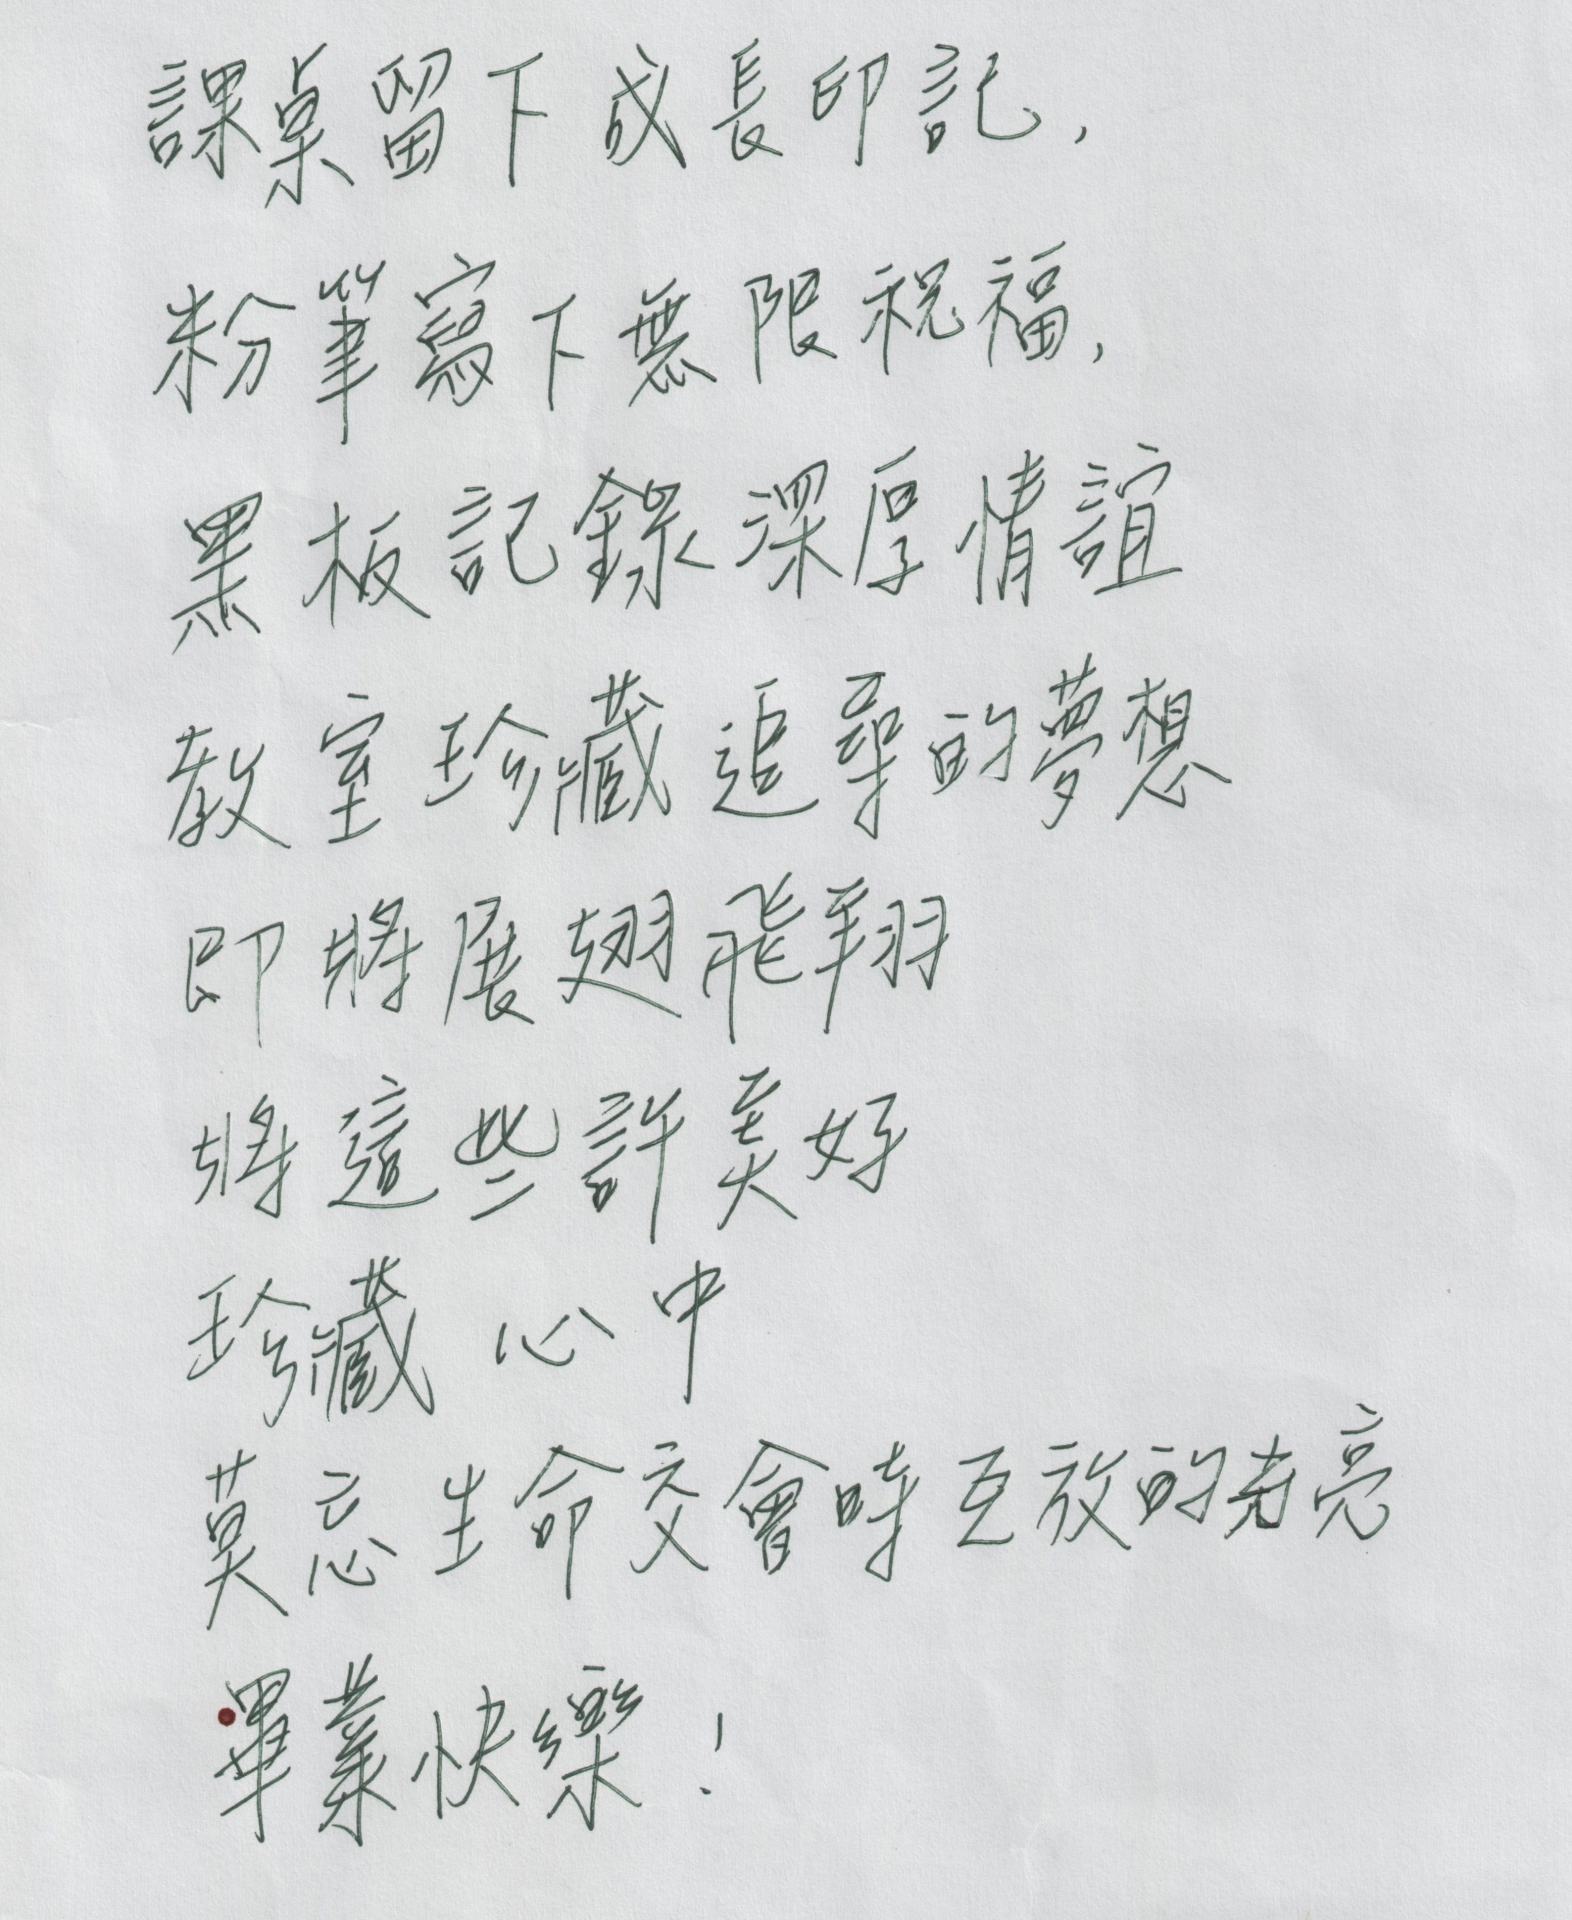 課桌留下成長印記,
粉筆寫下無限祝福,
黑板記錄深厚情誼
教室珍藏追尋的夢想
即將展翅飛翔
將這些許美好
珍藏心中
莫忘生命交會時互放的光亮
畢業快樂!